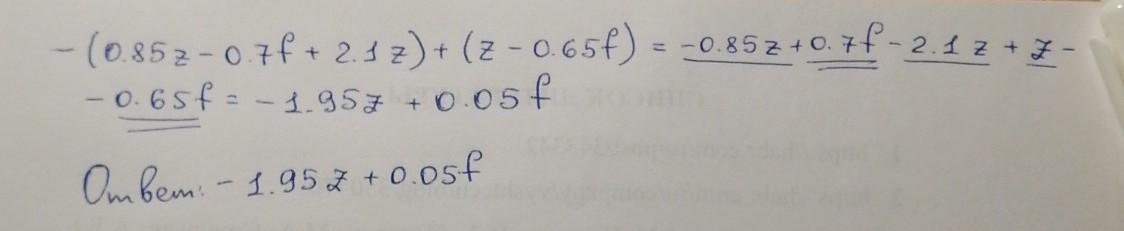 -(0.85z-0.7f+2.1z)+(z-0.65f)=-0.85z+0.7f-2.1z+z-
-0.65f=-1.95z+0.05f
Ответ: -1.95z+0.05f